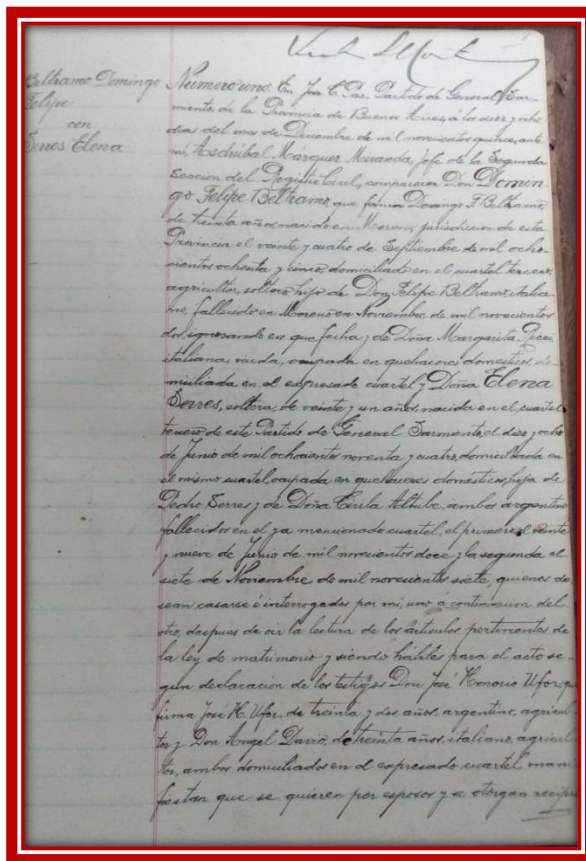 Beltramo Domingo
Felipe
con
Torres Elena
Número uno. En José C. Paz, Partido de General Sar-
miento de la Provincia de Buenos Aires, a los diez y ocho
dias del mes de Diciembre de mil novecientos quince, ante
mi, Asdrúbal Márquez Miranda, Jefe de la Segunda
Sección del Registro Civil, comparecen Don Domin-
go Felipe Beltramo, que firma Domingo F. Beltramo,
de treinta años, nacido en Moreno, jurisdiccion de esta
Provincia el veinte y cuatro de Septiembre de mil ocho-
cientos ochenta y cinco, domiciliado en el cuartel tercero,
agricultor, soltero, hijo de Don Felipe Beltramo, italia-
no, fallecido en Moreno en Noviembre de mil novecientos
dos, ignorando en que fecha, y de Doña Margarita
italiana, viuda, ocupada en quehaceres domesticos, do-
miciliada en el expresado cuartel, y Doña Elena
Torres, soltera, de veinte y un años, nacida en el cuartel
tercero de este Partido de General Sarmiento, el diez y ocho
de Junio de mil ochocientos noventa y cuatro, domiciliada en
el mismo cuartel, ocupada en quehaceres domésticos, hija de
Pedro Torres y de Doña Altube, ambos argentinos
fallecidos en el ya mencionado cuartel, el primero el veinte
y nueve de Junio de mil novecientos doce y la segunda el
siete de Noviembre de mil novecientos siete, quienes de-
sean casarse é interrogados por mi, uno á continuacion del
otro, despues de oir la lectura de los articulos pertinentes de
la ley de matrimonio y siendo hábiles para el acto se-
gun declaracion de los testigos Don José Honorio que
firma José H. de treinta y dos años, argentino, agricul-
tor y Don Angel de treinta años, italiano, agricul-
tor, ambos domiciliados en el expresado cuartel, mani-
fiestan que se quieren por esposos y se otorgan